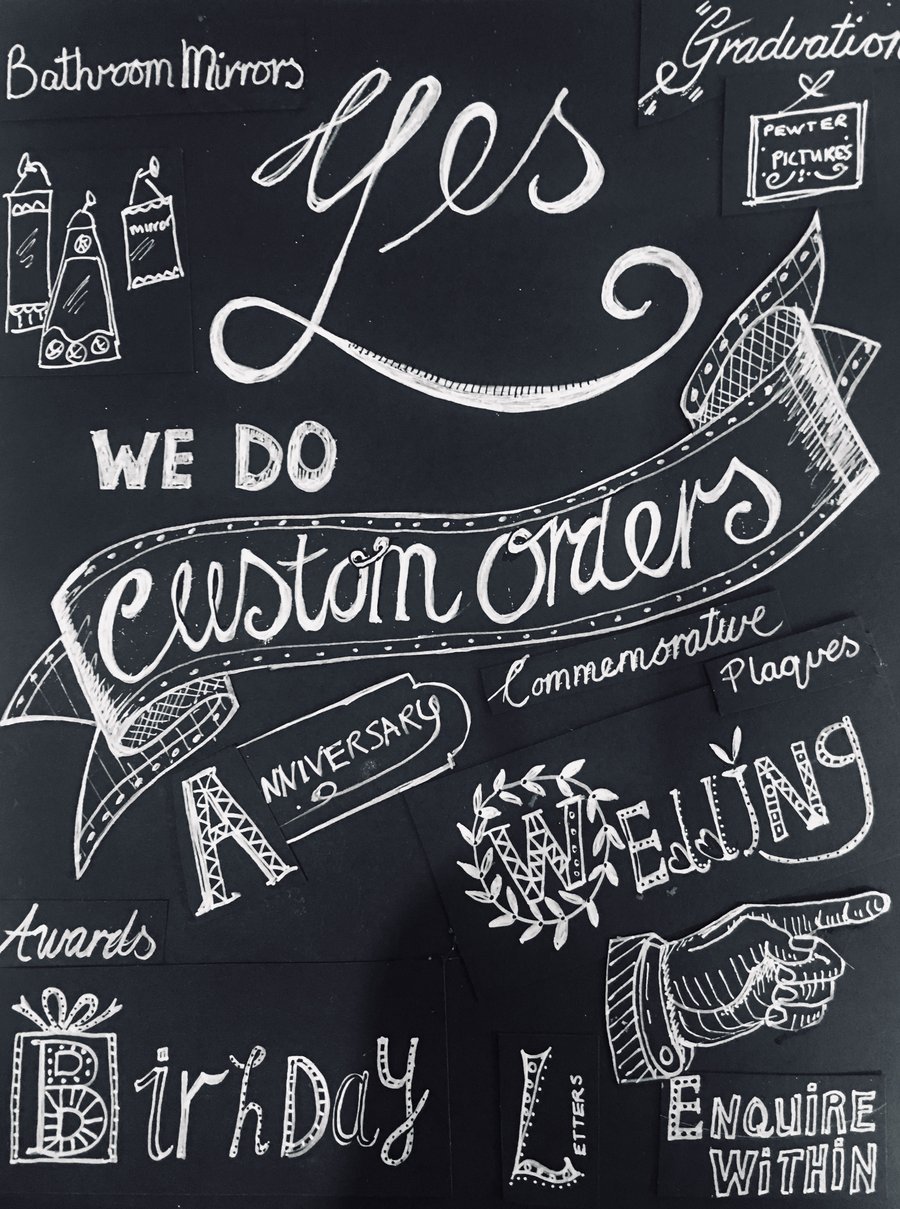 Graduation
Bathroom Mirrors
Yes
PEWTER
PICTURES
mirror
WE DO
Custom Orders
Commemorative
Plaques
ANNIVERSARY
WEddiNg
Awards
BirhDay
LETTERS
ENQUiRE
WiTHiN